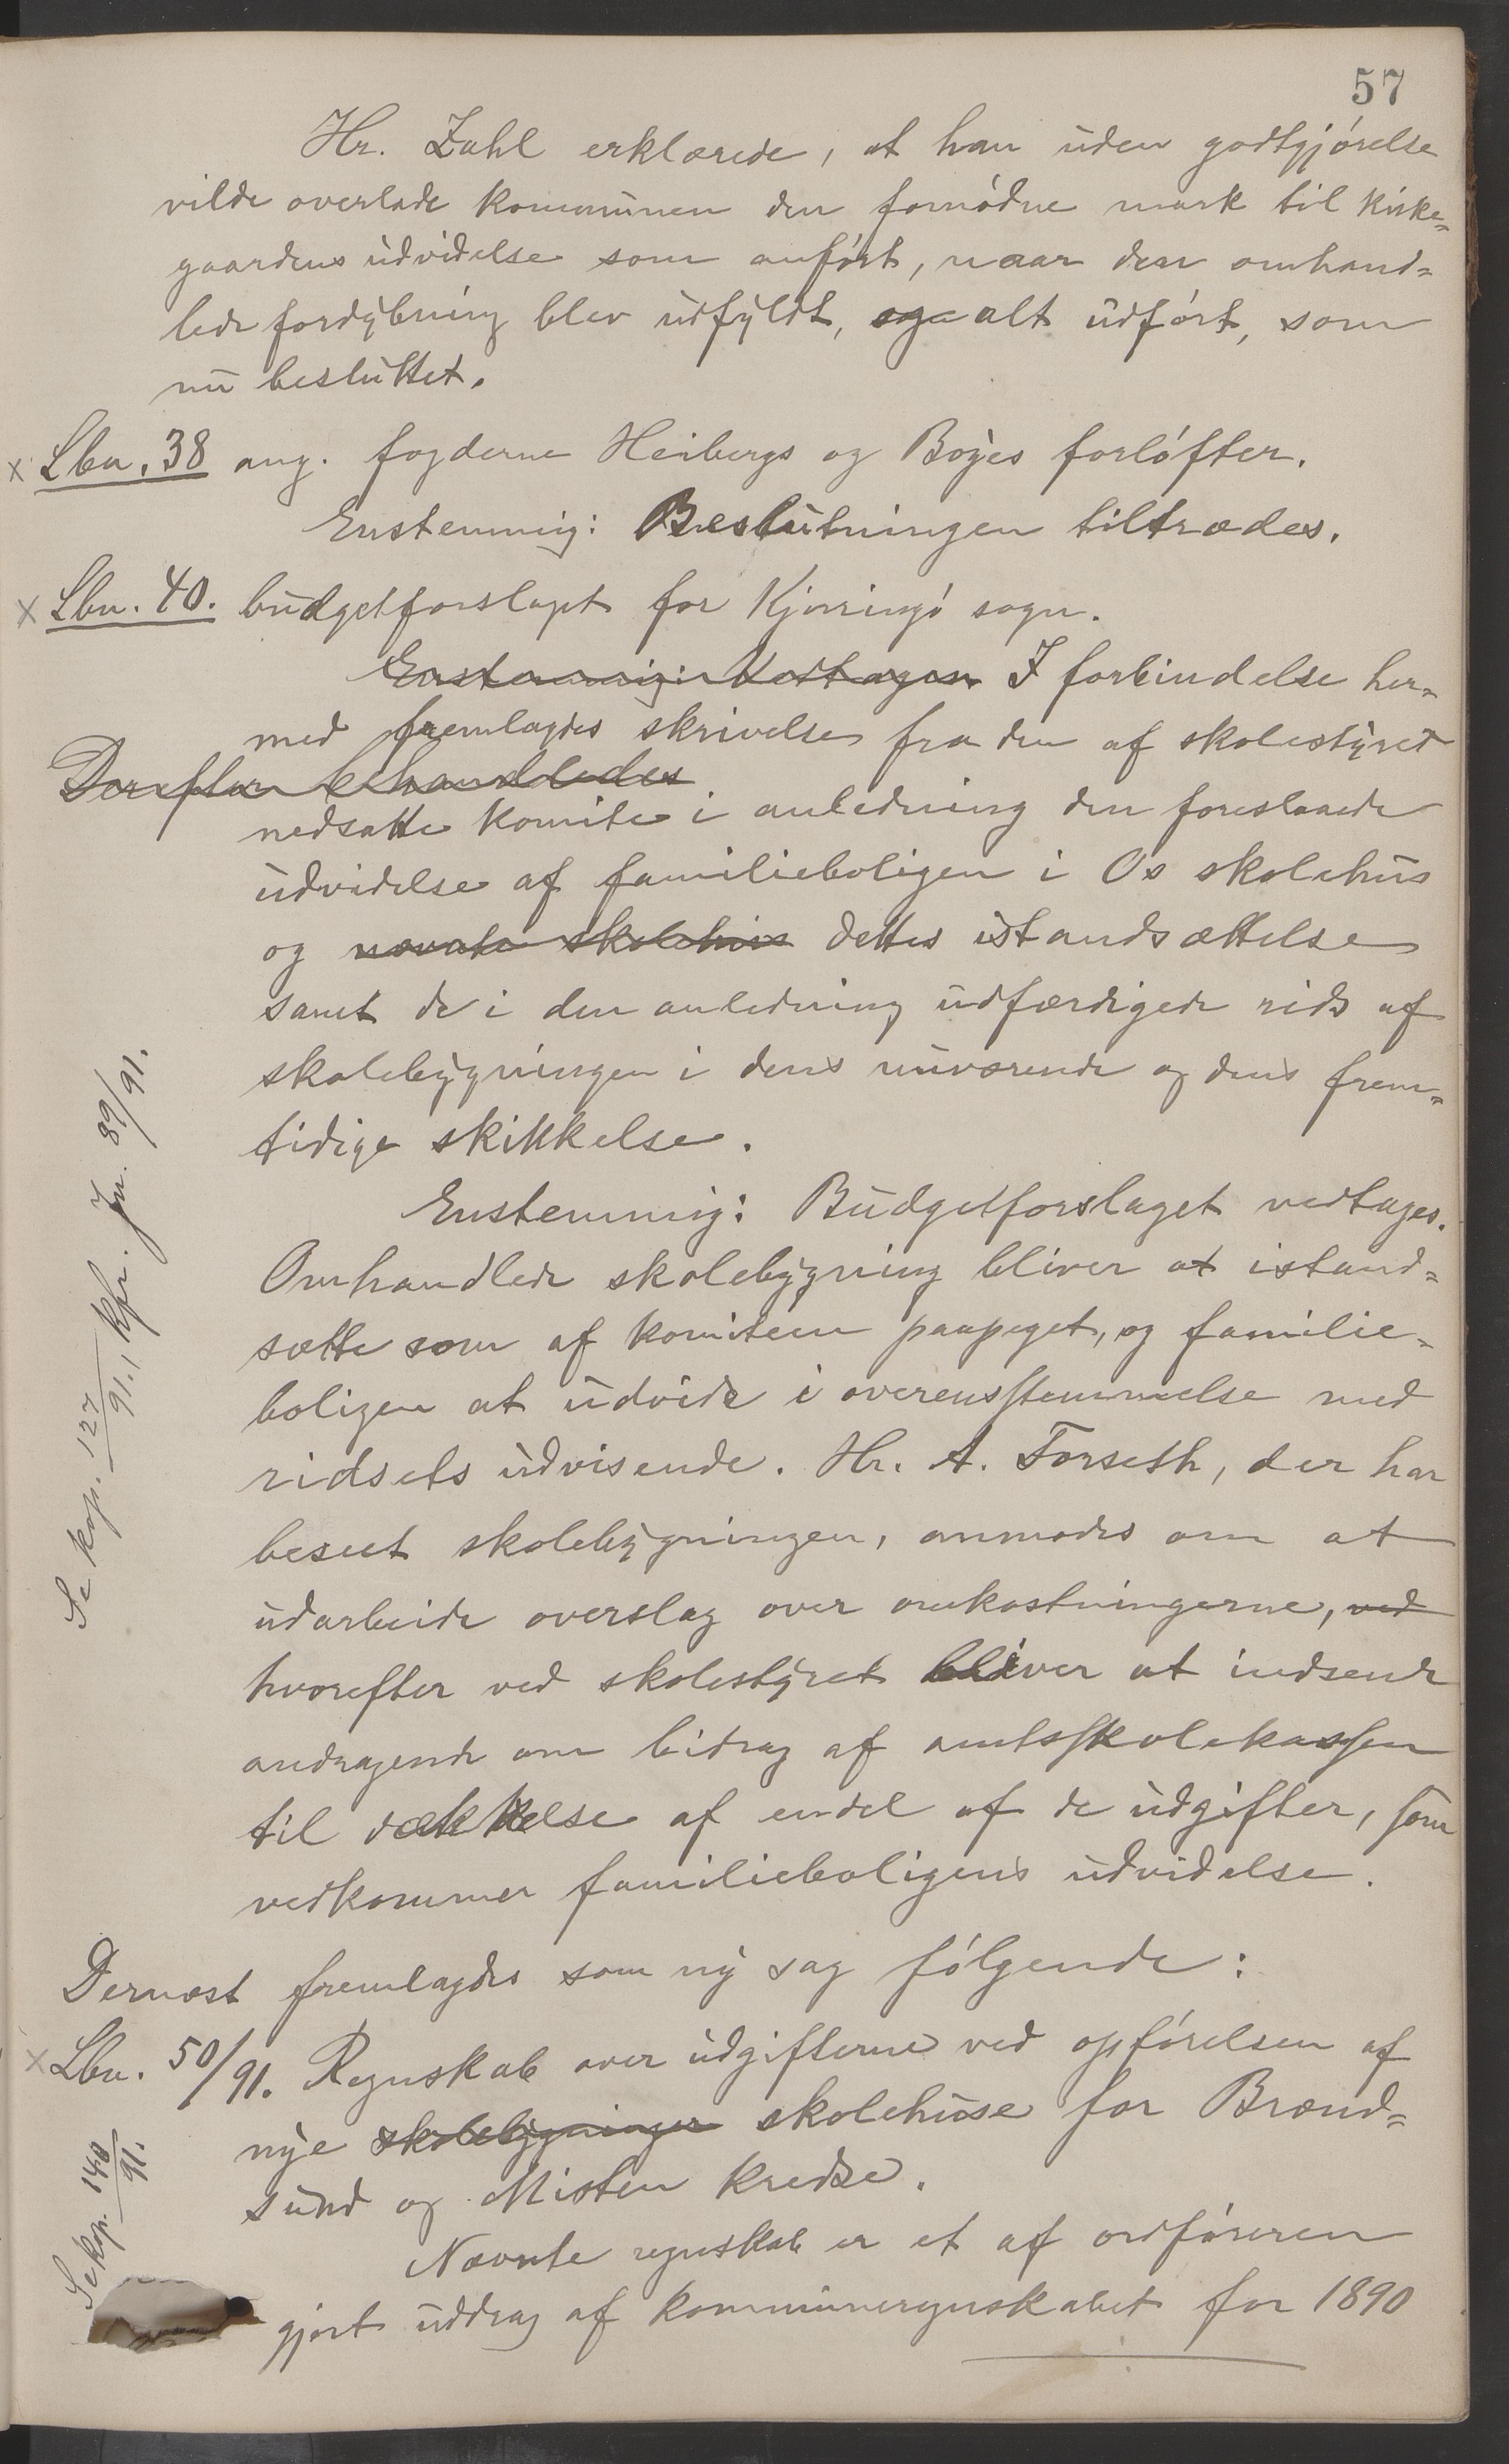 57
Hr. Zahl erklærede, at han uden godtgjórelse
vilde overlade kommunen den fornódne mark til kirke-
gaardens udvidelse som anfórt, naar den omhand-
lede fordybning blev udfyldt, og alt udfórt, som
nu besluttet.
x Lbn. 38 ang. fogderne Heibergs og Boyes forlófter.
Enstemmig: Beslutningen tiltrædes.
x Lbn. 40. budgetforslaget for Kjerringó sogn.
Enstemmig: Vedtages I forbindelse her-
med fremlagdes skrivelse fra den af skolestyret
Derefter behandledes
nedsatte komite i anledning den foreslaaede
udvidelse af familieboligen i Os skolehus
og nævnte skolehus dettes istandsættelse
samt de i den anledning udfærdigede rids af
skolebygningen i dens nuværende og dens frem-
tidige skikkelse.
Enstemmig: Budgetforslaget vedtages.
Omhandlede skolebygning bliver at istand-
sætte som af komiteen paapeget, og familie-
boligen at udvide i overensstemmelse med
ridsets udvisende. Hr. A. Forseth, der har
beseet skolebygningen, anmodes om at
udarbeide overslag over omkostningerne, ved
hvorefter ved skolestyret bliver at indsende
andragende om bidrag af amtsskolekassen
til dækkelse af endel af de udgifter, som
vedkommer familieboligens udvidelse.
Se kop. 127/91., kfr. Jn. 89/91.
Dernæst fremlagdes som ny sag fólgende:
x Lbn. 50/91. Regnskab over udgifterne ved opfórelsen af
nye skolebygninger skolehuse for Brænd-
sund og Misten kredse.
Nævnte regnskab er et af ordfóreren
gjort uddrag af kommuneregnskabet for 1890
Se kop. 148/91.